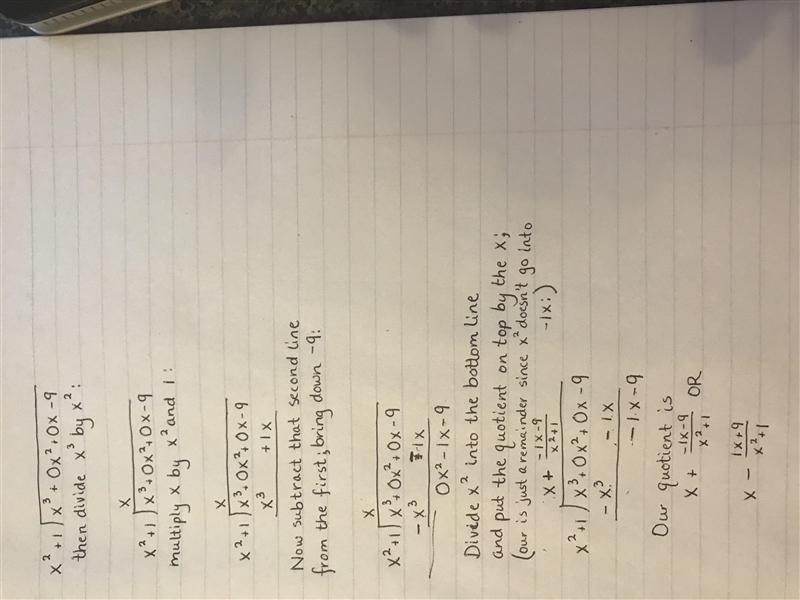 x² + 1 ) x³ + 0x² + 0x - 9
then divide x³ by x² :
x
x² + 1 ) x³ + 0x² + 0x - 9
multiply x by x² and 1 :
x
x² + 1 ) x³ + 0x² + 0x - 9
x³ + 1x
Now subtract that second line
from the first; bring down -9:
x
x² + 1 ) x³ + 0x² + 0x - 9
- x³ - 1x
0x² - 1x - 9
Divide x² into the bottom line
and put the quotient on top by the x;
(our is just a remainder since x² doesn't go into
-1x;)
x + (-1x - 9)/(x² + 1)
x² + 1 ) x³ + 0x² + 0x - 9
- x³ - 1x
- 1x - 9
Our quotient is
x + (-1x - 9)/(x² + 1) OR
x - (1x + 9)/(x² + 1)